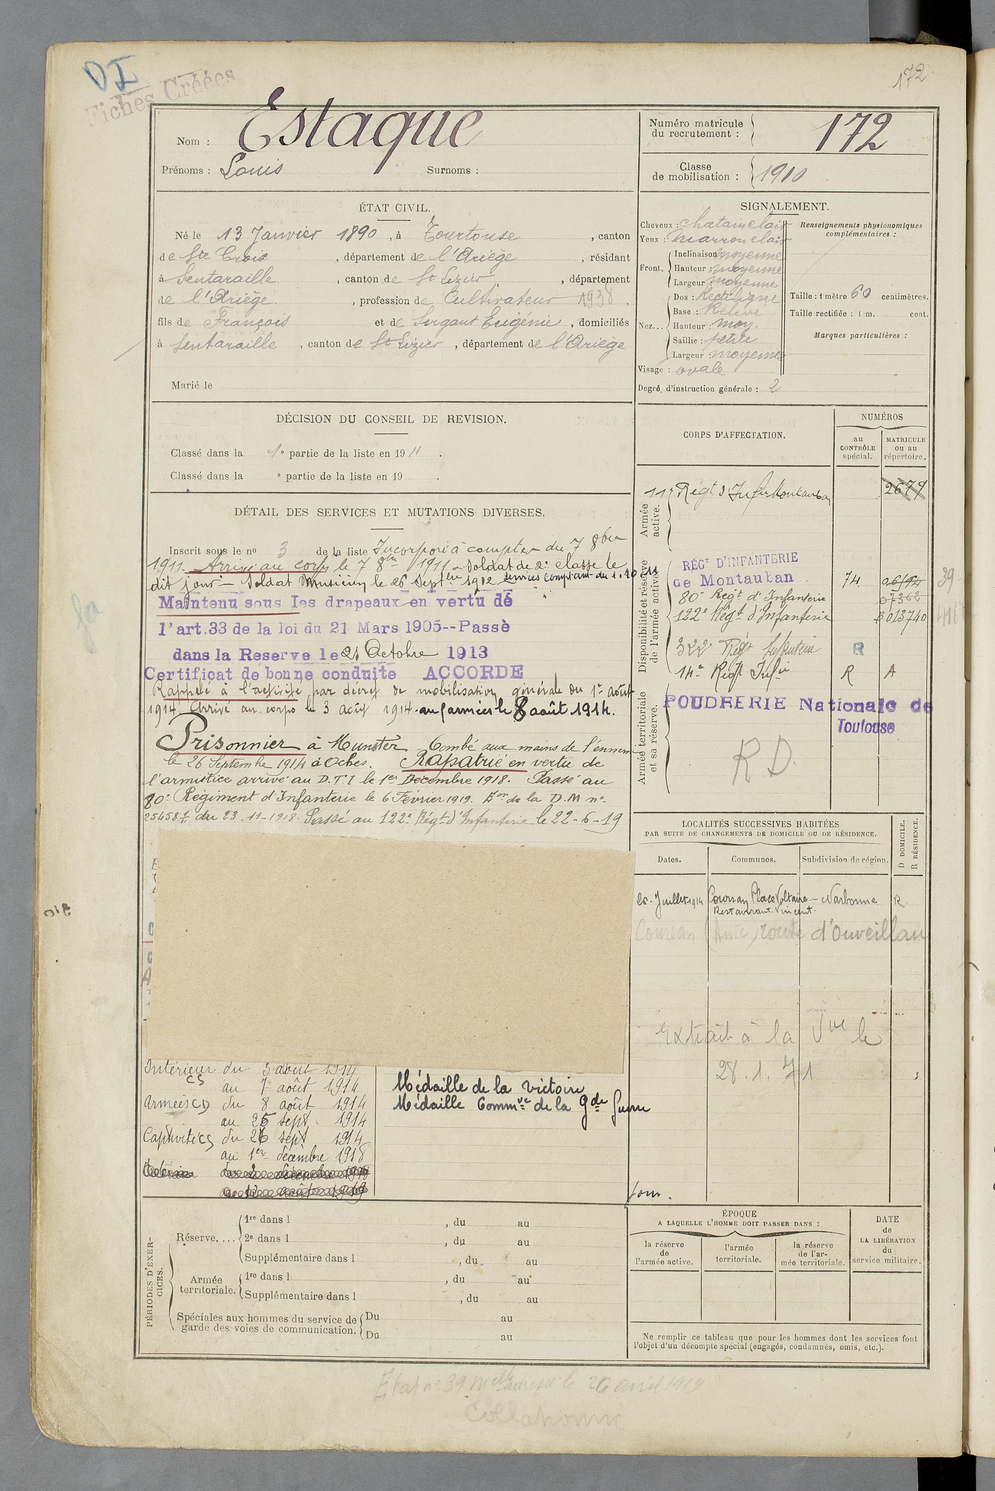 172
DI
Fiches Créées
Nom : Estaque
Prénoms : Louis Surnoms :
Numéro matricule du recrutement : 172
Classe de mobilisation : 1910
ÉTAT CIVIL.
Né le 13 Janvier 1890, à Tourtouse, canton
de Ste Croix, département de l'Ariège, résidant
à Sentaraille, canton de St Lizier, département
de l'Ariège, profession de Cultivateur 1938
fils de François et de Sirgant Eugénie, domiciliés
à Sentaraille, canton de St Lizier, département de l'Ariège
Marié le
SIGNALEMENT.
Cheveux : chatain clair
Yeux : marron clair
Front. Inclinaison moyenne
Hauteur : moyenne
Largeur : moyenne
Nez... Dos : Rectiligne
Base : Relevé
Hauteur : moy.
Saillie : petite
Largeur : moyenne
Visage : ovale
Degré d'instruction générale : 2
Renseignements physionomiques complémentaires :
Taille : 1 mètre 60 centimètres.
Taille rectifiée : 1 m. cent.
Marques particulières :
DÉCISION DU CONSEIL DE REVISION.
Classé dans la 1e partie de la liste en 1911.
Classé dans la e partie de la liste en 19 .
DÉTAIL DES SERVICES ET MUTATIONS DIVERSES.
Inscrit sous le no 3 de la liste Incorporé à compter du 7 8bre
1911. Arrivé au corps le 7 8bre 1911. Soldat de 2e classe le
dit jour. Soldat Musicien le 26 Septbre 1912 services comptant du 1.10
Maintenu sous les drapeaux en vertu de
l'art.33 de la loi du 21 Mars 1905--Passé
dans la Reserve le 24 Octobre 1913
Certificat de bonne conduite ACCORDE
Rappelé à l'activité par décret de mobilisation générale du 1er août
1914. Arrivé au corps le 3 août 1914. aux armées le 8 août 1914.
Prisonnier à Munster Tombé aux mains de l'ennemi
le 26 Septembre 1914 à Oches. Rapatrié en vertu de
l'armistice arrivé au D.T.I le 1er Décembre 1918. Passé au
80e Régiment d'Infanterie le 6 Février 1919. de la D.M no
25458 du 23-11-1918. Passé au 122e Régt d'Infanterie le 22-6-19
Intérieur du 3 août 1914
CS au 7 août 1914
Armées CD du 8 août 1914
au 25 sept. 1914
Captivité CS du 26 sept 1914
au 1er décembre 1918
Médaille de la victoire
Médaille Commve de la Gde Guerre
CORPS D'AFFECTATION.
NUMÉROS
au CONTRÔLE spécial.
MATRICULE ou au répertoire.
Armée active.
11e Régt d'Infie Montauban 2679
Disponibilité et réserve de l'armée active.
RÉGT D'INFANTERIE
de Montauban 74
80e Régt d'Infanterie
122e Régt d'Infanterie 013740
322e Régt Infanterie R
14e Régt Infie R A
Armée territoriale et sa réserve.
POUDRERIE Nationale de
Toulouse
R D.
LOCALITÉS SUCCESSIVES HABITÉES
PAR SUITE DE CHANGEMENTS DE DOMICILE OU DE RÉSIDENCE.
Dates. Communes. Subdivision de région.
D DOMICILE. R RÉSIDENCE.
Juillet 1914 Coursan Place Voltaire - Narbonne R
Restaurant Vincent.
Coursan (Aude) route d'Ouveillan
Extrait à la Vve le
28.1.71
PÉRIODES D'EXERCICES.
Réserve.... 1re dans l , du au
2e dans l , du au
Supplémentaire dans l , du au
Armée territoriale. 1re dans l , du au
Supplémentaire dans l , du au
Spéciales aux hommes du service de garde des voies de communication. Du au
Du au
ÉPOQUE
A LAQUELLE L'HOMME DOIT PASSER DANS :
la réserve de l'armée active.
l'armée territoriale.
la réserve de l'armée territoriale.
DATE de LA LIBÉRATION du service militaire.
Ne remplir ce tableau que pour les hommes dont les services font
l'objet d'un décompte spécial (engagés, condamnés, omis, etc.).
État no 39 le 26 avril 1919